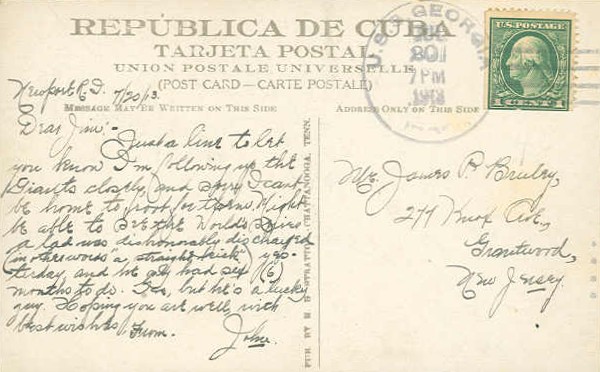 REPÚBLICA DE CUBA
TARJETA POSTAL
UNION POSTALE UNIVERSELLE
(POST CARD—CARTE POSTALE)
MESSAGE MAY BE WRITTEN ON THIS SIDE
ADDRESS ONLY ON THIS SIDE
U.S.S. GEORGIA
JUL
20
7 PM
1913
U.S. POSTAGE
1 CENT 1
Newport R.I. 7/20/13.
Dear Jim:-
Just a line to let
you know I'm following up the
Giants closely, and sorry I can't
be home to root for them. Might
be able to see the World's Series
a lad was dishonorably discharged
(in other words a "straight kick") yes-
terday, and he only had six (6)
months to do. Gee, but he's a lucky
guy. Hoping you are well, with
best wishes, From.
John
Mr. James P. Bruley,
277 Knox Ave.,
Grantwood,
New Jersey.
CHATTANOOGA, TENN.